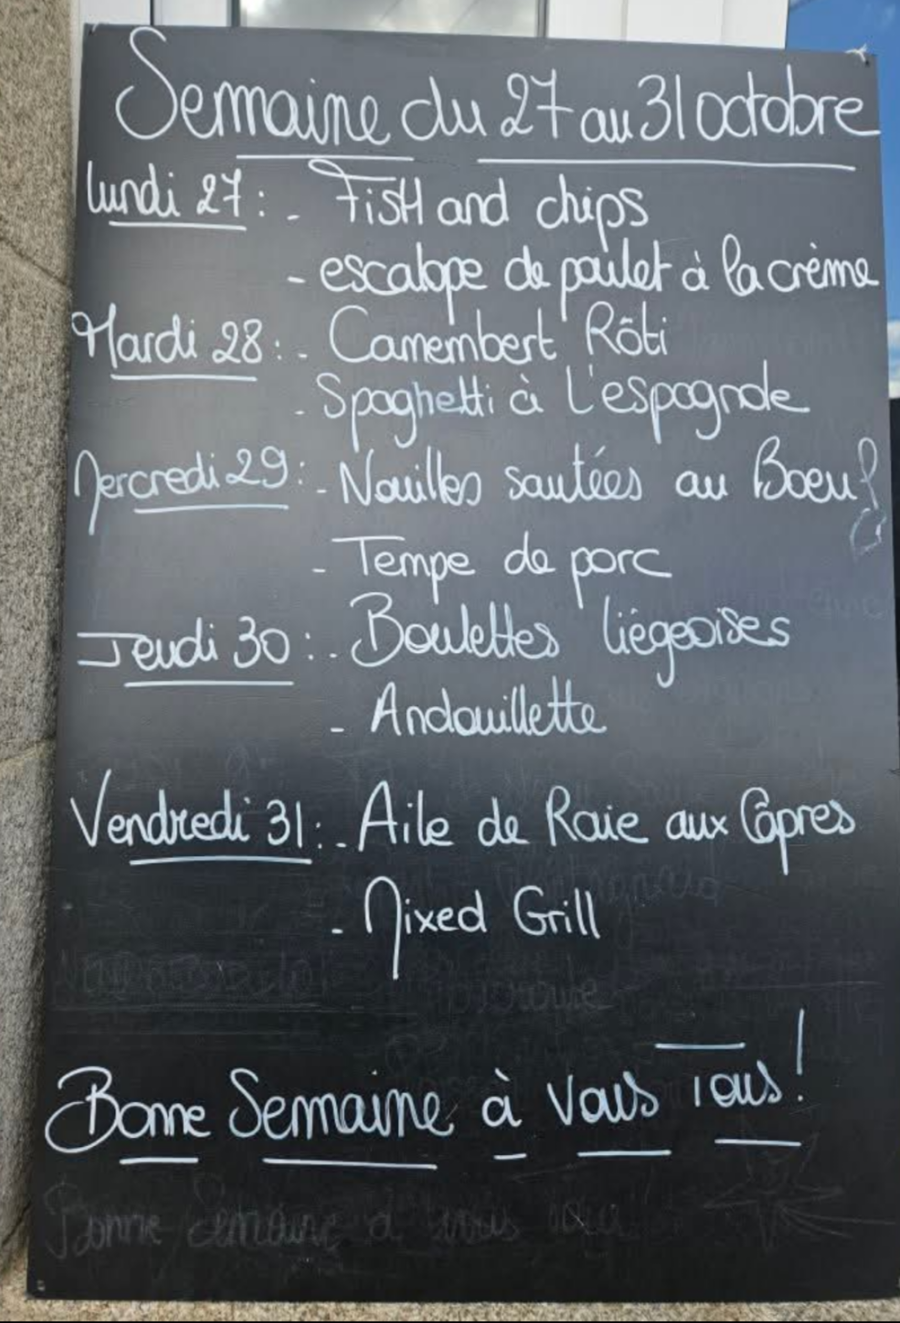 Semaine du 27 au 31 octobre
lundi 27 : - FisH and chips
- escalope de poulet à la crème
Mardi 28 : - Camembert Rôti
- Spaghetti à l'espagnole
Mercredi 29 : - Nouilles sautées au Boeuf
- Tempe de porc
Jeudi 30 : - Boulettes liégeoises
- Andouillette
Vendredi 31 : - Aile de Raie aux Câpres
- Mixed Grill
Bonne Semaine à Vous Tous !
Bonne Semaine à vous